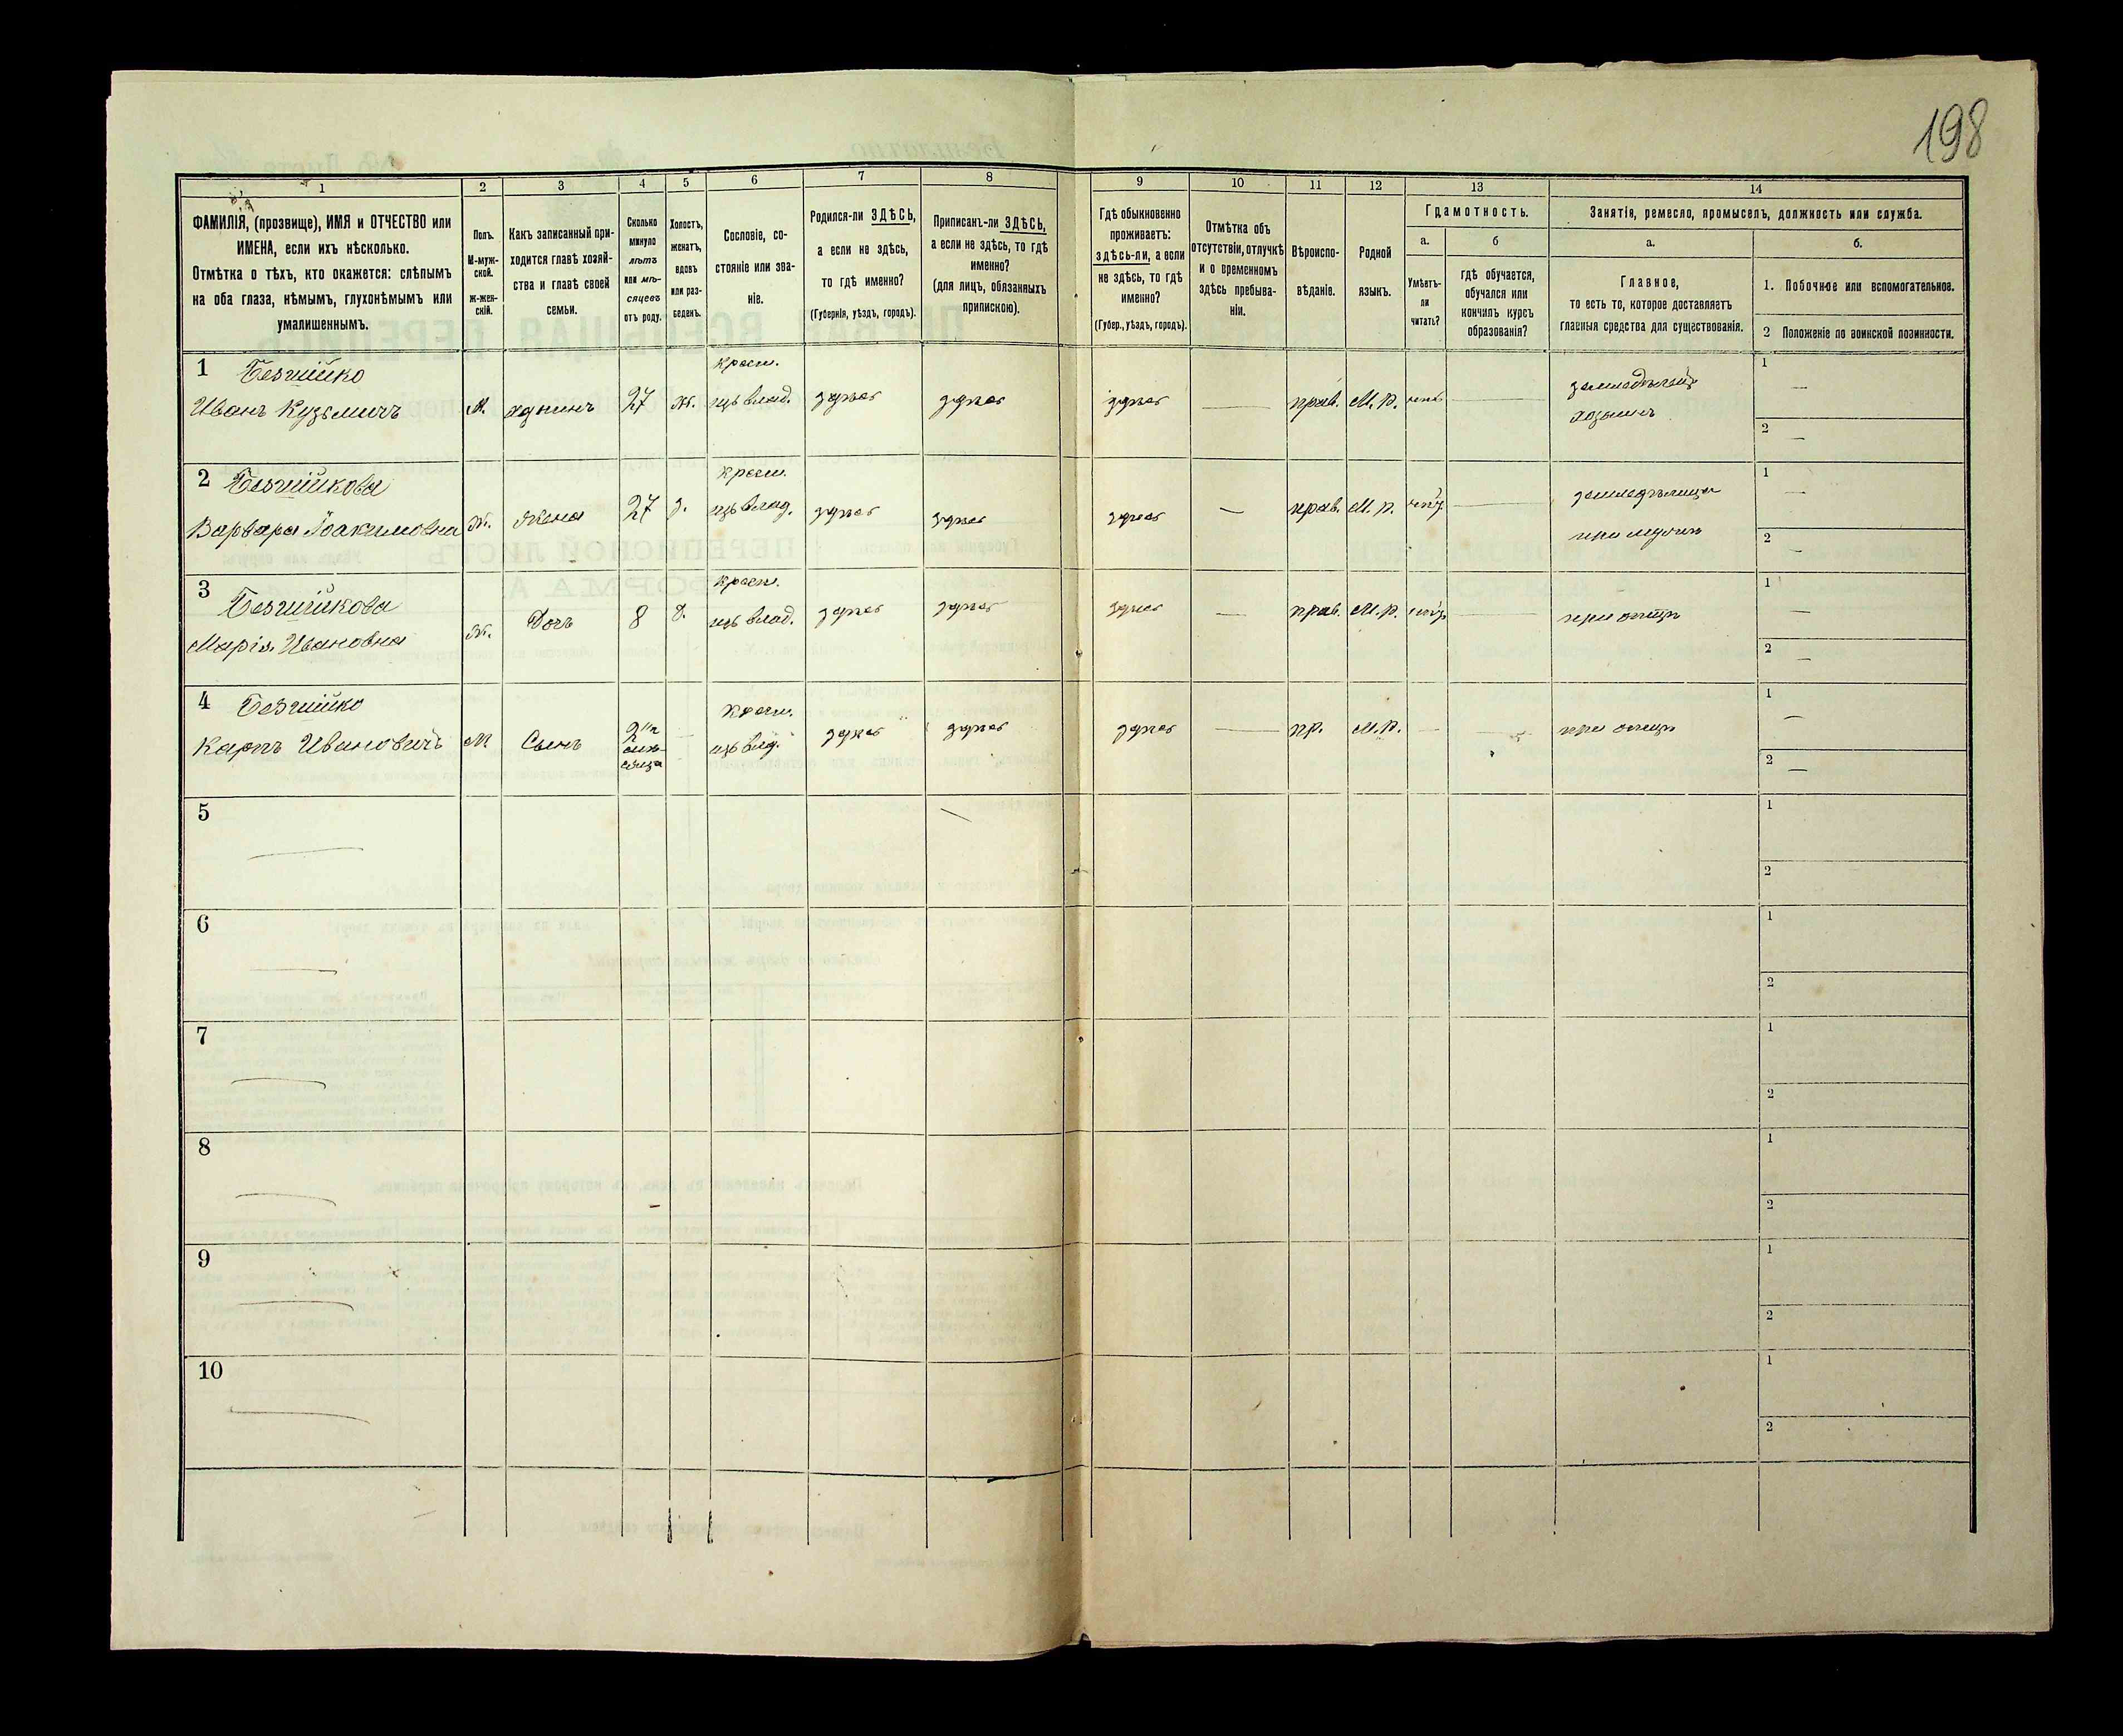 198
1
2
3
4
5
6
7
8
9
10
11
12
13
14
ФАМИЛІЯ, (прозвище), ИМЯ и ОТЧЕСТВО или
ИМЕНА, если ихъ нѣсколько.
Отмѣтка о тѣхъ, кто окажется: слѣпымъ
на оба глаза, нѣмымъ, глухонѣмымъ или
умалишеннымъ.
Полъ.
М-муж-
ской.
ж-жен-
скій.
Какъ записанный при-
ходится главѣ хозяй-
ства и главѣ своей
семьи.
Сколько
минуло
лѣтъ
или мѣ-
сяцевъ
отъ роду.
Холостъ,
женатъ,
вдовъ
или раз-
веденъ.
Сословіе, со-
стояніе или зва-
ніе.
Родился-ли ЗДѢСЬ,
а если не здѣсь,
то гдѣ именно?
(Губернія, уѣздъ, городъ).
Приписанъ-ли ЗДѢСЬ,
а если не здѣсь, то гдѣ
именно?
(для лицъ, обязанныхъ
припискою).
Гдѣ обыкновенно
проживаетъ:
здѣсь-ли, а если
не здѣсь, то гдѣ
именно?
(Губер., уѣздъ, городъ).
Отмѣтка объ
отсутствіи, отлучкѣ
и о временномъ
здѣсь пребыва-
ніи.
Вѣроиспо-
вѣданіе.
Родной
языкъ.
Грамотность.
а.
б
Умѣетъ-
ли
читать?
гдѣ обучается,
обучался или
кончилъ курсъ
образованія?
Занятія, ремесло, промыселъ, должность или служба.
а.
б.
Главное,
то есть то, которое доставляетъ
главныя средства для существованія.
1. Побочное или вспомогательное.
2 Положеніе по воинской повинности.
1
Иванъ Кузьмичъ М. 27 ж. крест. изъ влад. здѣсь здѣсь здѣсь — прав. М. р. — хозяинъ
1 —
2 —
2
Варвара Іоакимовна ж. жена 27 з. крест. изъ влад. здѣсь здѣсь здѣсь — прав. М. р. —
1 —
2 —
3
Марія Ивановна ж. Дочь 8 крест. изъ влад. здѣсь здѣсь здѣсь — прав. М. р. — при отцѣ
1 —
2 —
4
Карпъ Ивановичъ М Сынъ 2 мѣ-сяца — крест. изъ влад. здѣсь здѣсь здѣсь — пр. М. р. — — при отцѣ
1 —
2 —
5 —
1
2
6 —
1
2
7 —
1
2
8 —
1
2
9 —
1
2
10 —
1
2